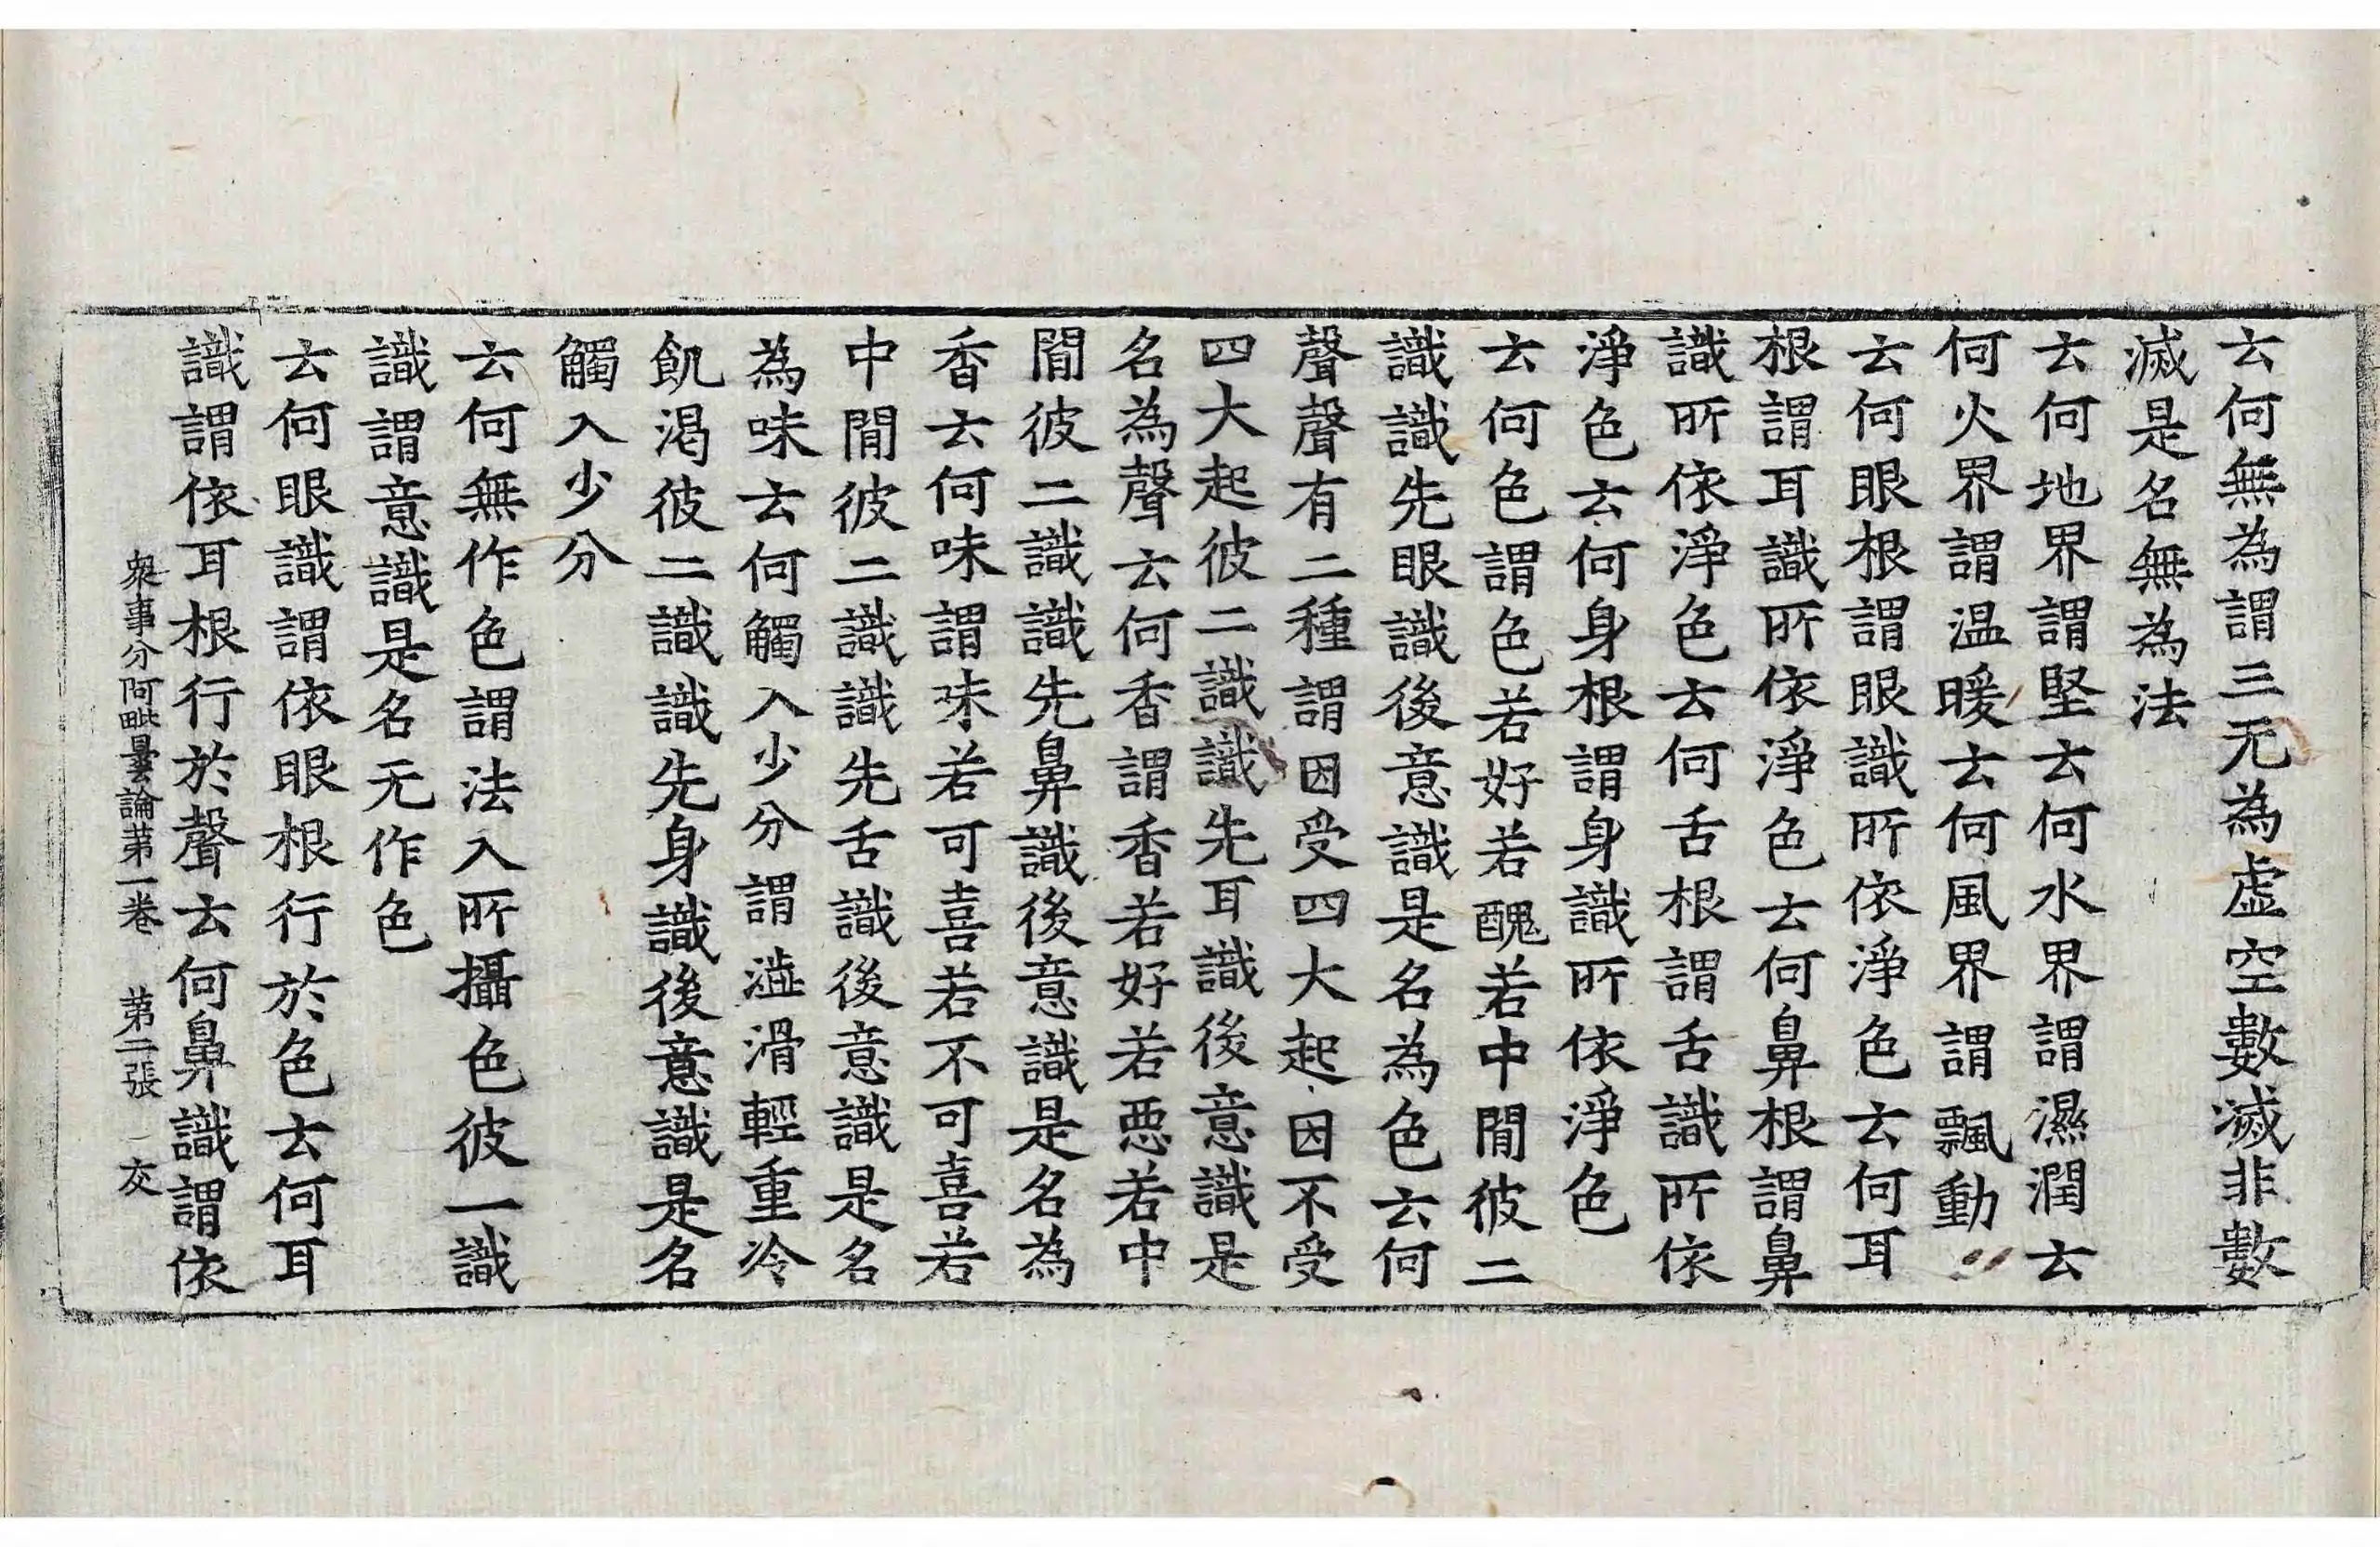 云何無為謂三无為虛空數滅非數
滅是名無為法
云何地界謂堅云何水界謂濕潤云
何火界謂温暖云何風界謂飄動
云何眼根謂眼識所依淨色云何耳
根謂耳識所依淨色云何鼻根謂鼻
識所依淨色云何舌根謂舌識所依
淨色云何身根謂身識所依淨色
云何色謂色若好若醜若中閒彼二
識識先眼識後意識是名為色云何
聲聲有二種謂因受四大起因不受
四大起彼二識識先耳識後意識是
名為聲云何香謂香若好若惡若中
閒彼二識識先鼻識後意識是名為
香云何味謂味若可喜若不可喜若
中閒彼二識識先舌識後意識是名
為味云何觸入少分謂澁滑輕重冷
飢渴彼二識識先身識後意識是名
觸入少分
云何無作色謂法入所攝色彼一識
識謂意識是名无作色
云何眼識謂依眼根行於色云何耳
識謂依耳根行於聲云何鼻識謂依
衆事分阿毗曇論苐一卷 苐二張 交